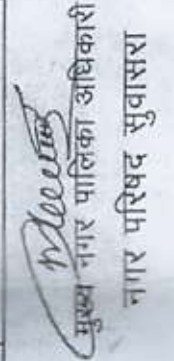 मुख्य नगर पालिका अधिकारी
नगर परिषद सुवासरा